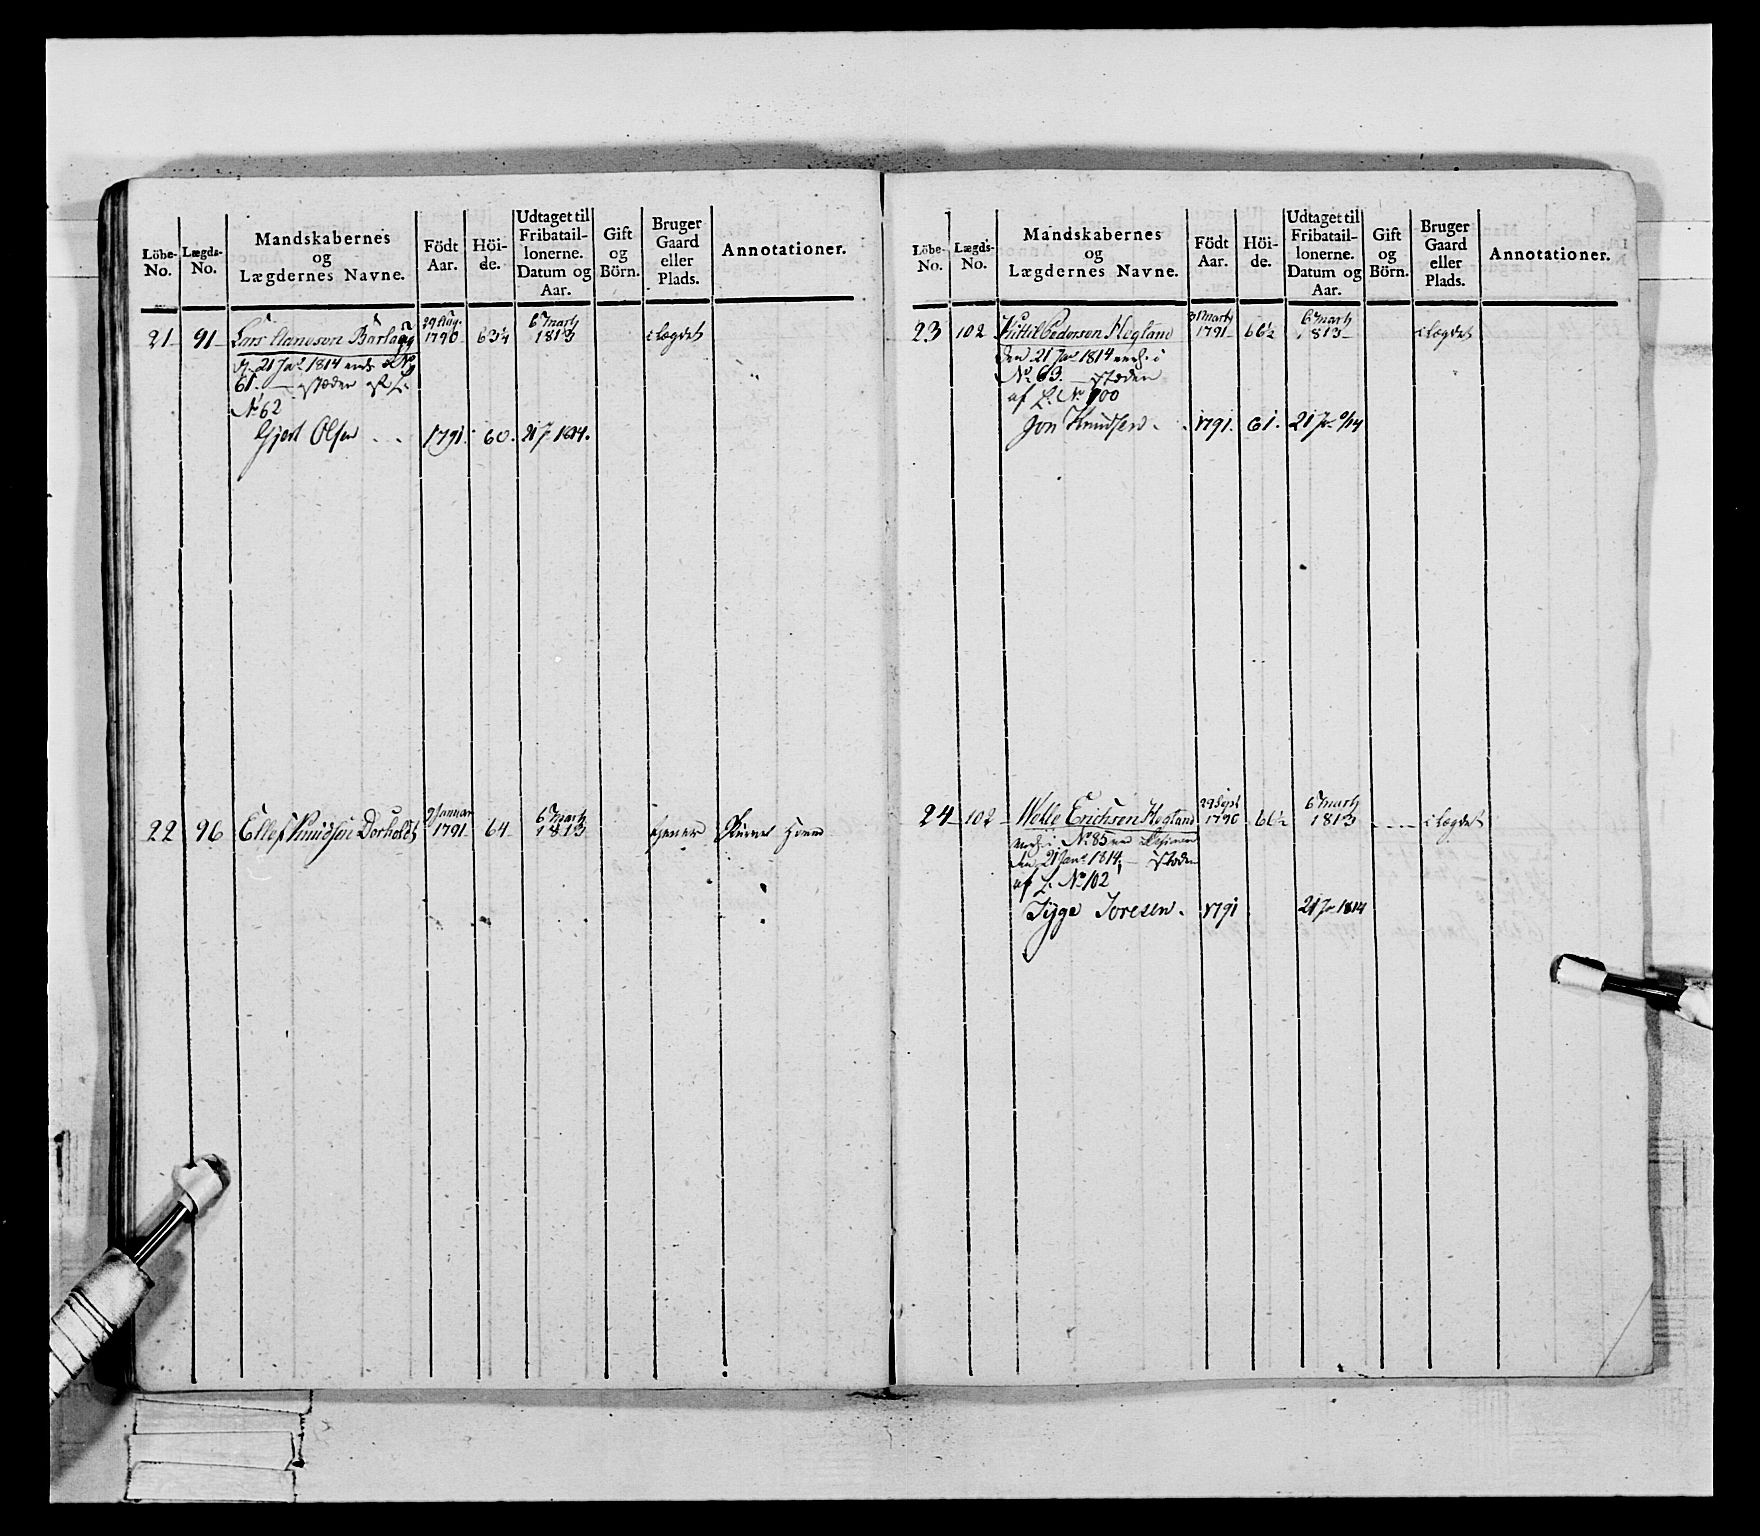 Löbe- No.
Lægds- No.
Mandskabernes og Lægdernes Navne.
Födt Aar.
Höi- de.
Udtaget til Fribatail- lonerne. Datum og Aar.
Gift og Börn.
Bruger Gaard eller Plads.
Annotationer.
21 91 Lars Hansen 29 Aug. 1790 63½ 6 Marty 1813 i Lægdet
21 Jan 1814
61. — støden af L:
No 62
Gjert Olsen 1791. 60. 21 J 1814.
22 96 Ellef Knudsen 2 Januar 1791 64 6 Marty 1813 tjener
Löbe- No.
Lægds- No.
Mandskabernes og Lægdernes Navne.
Födt Aar.
Höi- de.
Udtaget til Fribatail- lonerne. Datum og Aar.
Gift og Börn.
Bruger Gaard eller Plads.
Annotationer.
23 102 Kittil Pedersen Hogland 3 Marty 1791 66½ 6 Marty 1813 i Lægdet
den 21 Jan 1814 i
No 63. — støden
af L: No 100
Jon Knudsen 1791. 61. 21 Jan
24 102 Erichsen Hogland 29 Sept 1790 66½ 6 Marty 1813 i Lægdet
i No 85
den 21 Jan 1814, — støden
af L. No 102
Tyge Toresen. 1791 21 Jan 1814